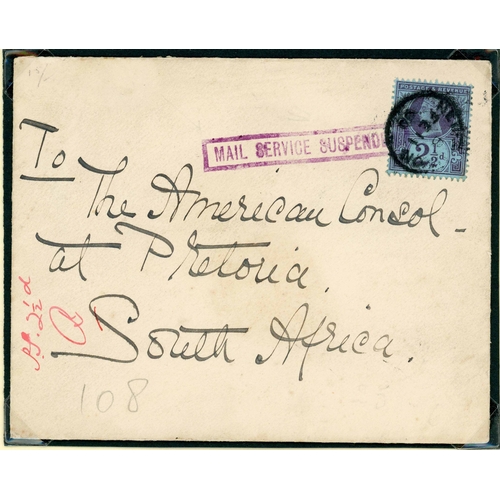 POSTAGE & REVENUE
2½d
MAIL SERVICE SUSPENDE
To
The American Consol-
at Pretoria,
South Africa.
2½d
108